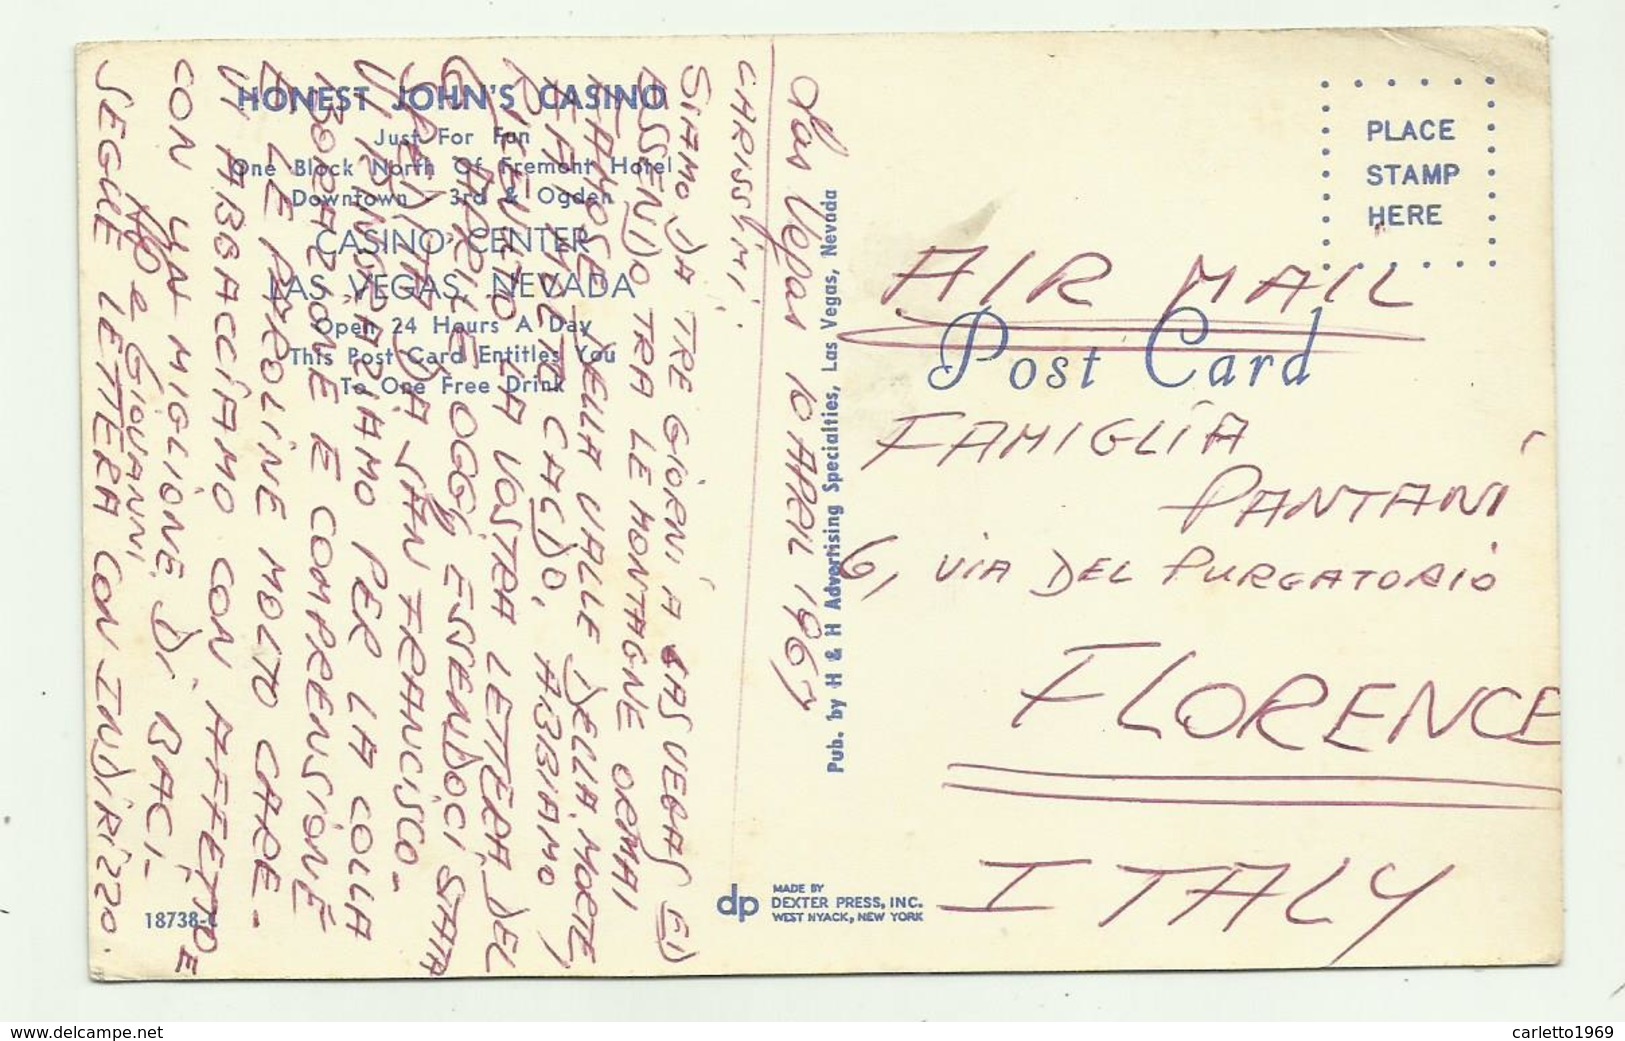 HONEST JOHN'S CASINO
Just For Fun
One Block North Of Fremont Hotel
Downtown - 3rd & Ogden
CASINO CENTER
LAS VEGAS, NEVADA
Open 24 Hours A Day
This Post Card Entitles You
To One Free Drink
18738-C
Pub. by H & H Advertising Specialties, Las Vegas, Nevada
dp MADE BY
DEXTER PRESS, INC.
WEST NYACK, NEW YORK
PLACE
STAMP
HERE
Post Card
AIR MAIL
FAMIGLIA
PANTANI
6, VIA DEL PURGATORIO
FLORENCE
ITALY
Las Vegas 10 APRIL 1967
CARISSIMI,
SIAMO DA TRE GIORNI A LAS VEGAS ED
ESSENDO TRA LE MONTAGNE ORMAI
FAMOSE DELLA VALLE DELLA MORTE
FA MOLTO CALDO, ABBIAMO
RICEVUTO LA VOSTRA LETTERA DEL
APRILE OGGI ESSENDOCI STATA
SPEDITA DA SAN FRANCISCO-
VI RINGRAZIAMO PER LA COLLA
BORAZIONE E COMPRENSIONE
E LE PAROLINE MOLTO CARE-
VI ABBACCIAMO CON AFFETTO E
CON UN MIGLIONE DI BACI-
e GIOVANNI
SEGUE LETTERA CON INDIRIZZO.
www.delcampe.net
carletto1969